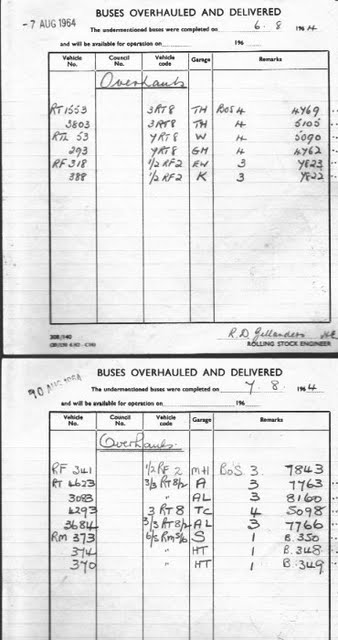 BUSES OVERHAULED AND DELIVERED
- 7 AUG 1964
The undermentioned buses were completed on 6. 8 196 4
and will be available for operation on 196
Vehicle No. Council No. Vehicle code Garage Remarks
Overhauls
RT 1553 3RT8 TH BoS 4 4769
3803 3RT8 TH 4 5105
RTL 53 7RT8 W 4 5090
293 7RT8 GM 4 4762
RF 318 1/2 RF2 EW 3 7823
388 1/2 RF2 K 3 7822
R.D. Gellanders
ROLLING STOCK ENGINEER
BUSES OVERHAULED AND DELIVERED
10 AUG 1964
The undermentioned buses were completed on 7. 8. 196 4
and will be available for operation on 196
Vehicle No. Council No. Vehicle code Garage Remarks
Overhauls.
RF 341 1/2 RF 2 MH BoS 3. 7843
RT 4623 3/3 RT8/2 A 3 7763
3083 " AL 3 8160
4293 3 RT 8 TC 4 5098
3684 3/3 RT8/2 AL 3 7766
RM 373 6/5 RM5/6 S 1 B.350
374 " HT 1 B.348
370 " HT 1 B.349